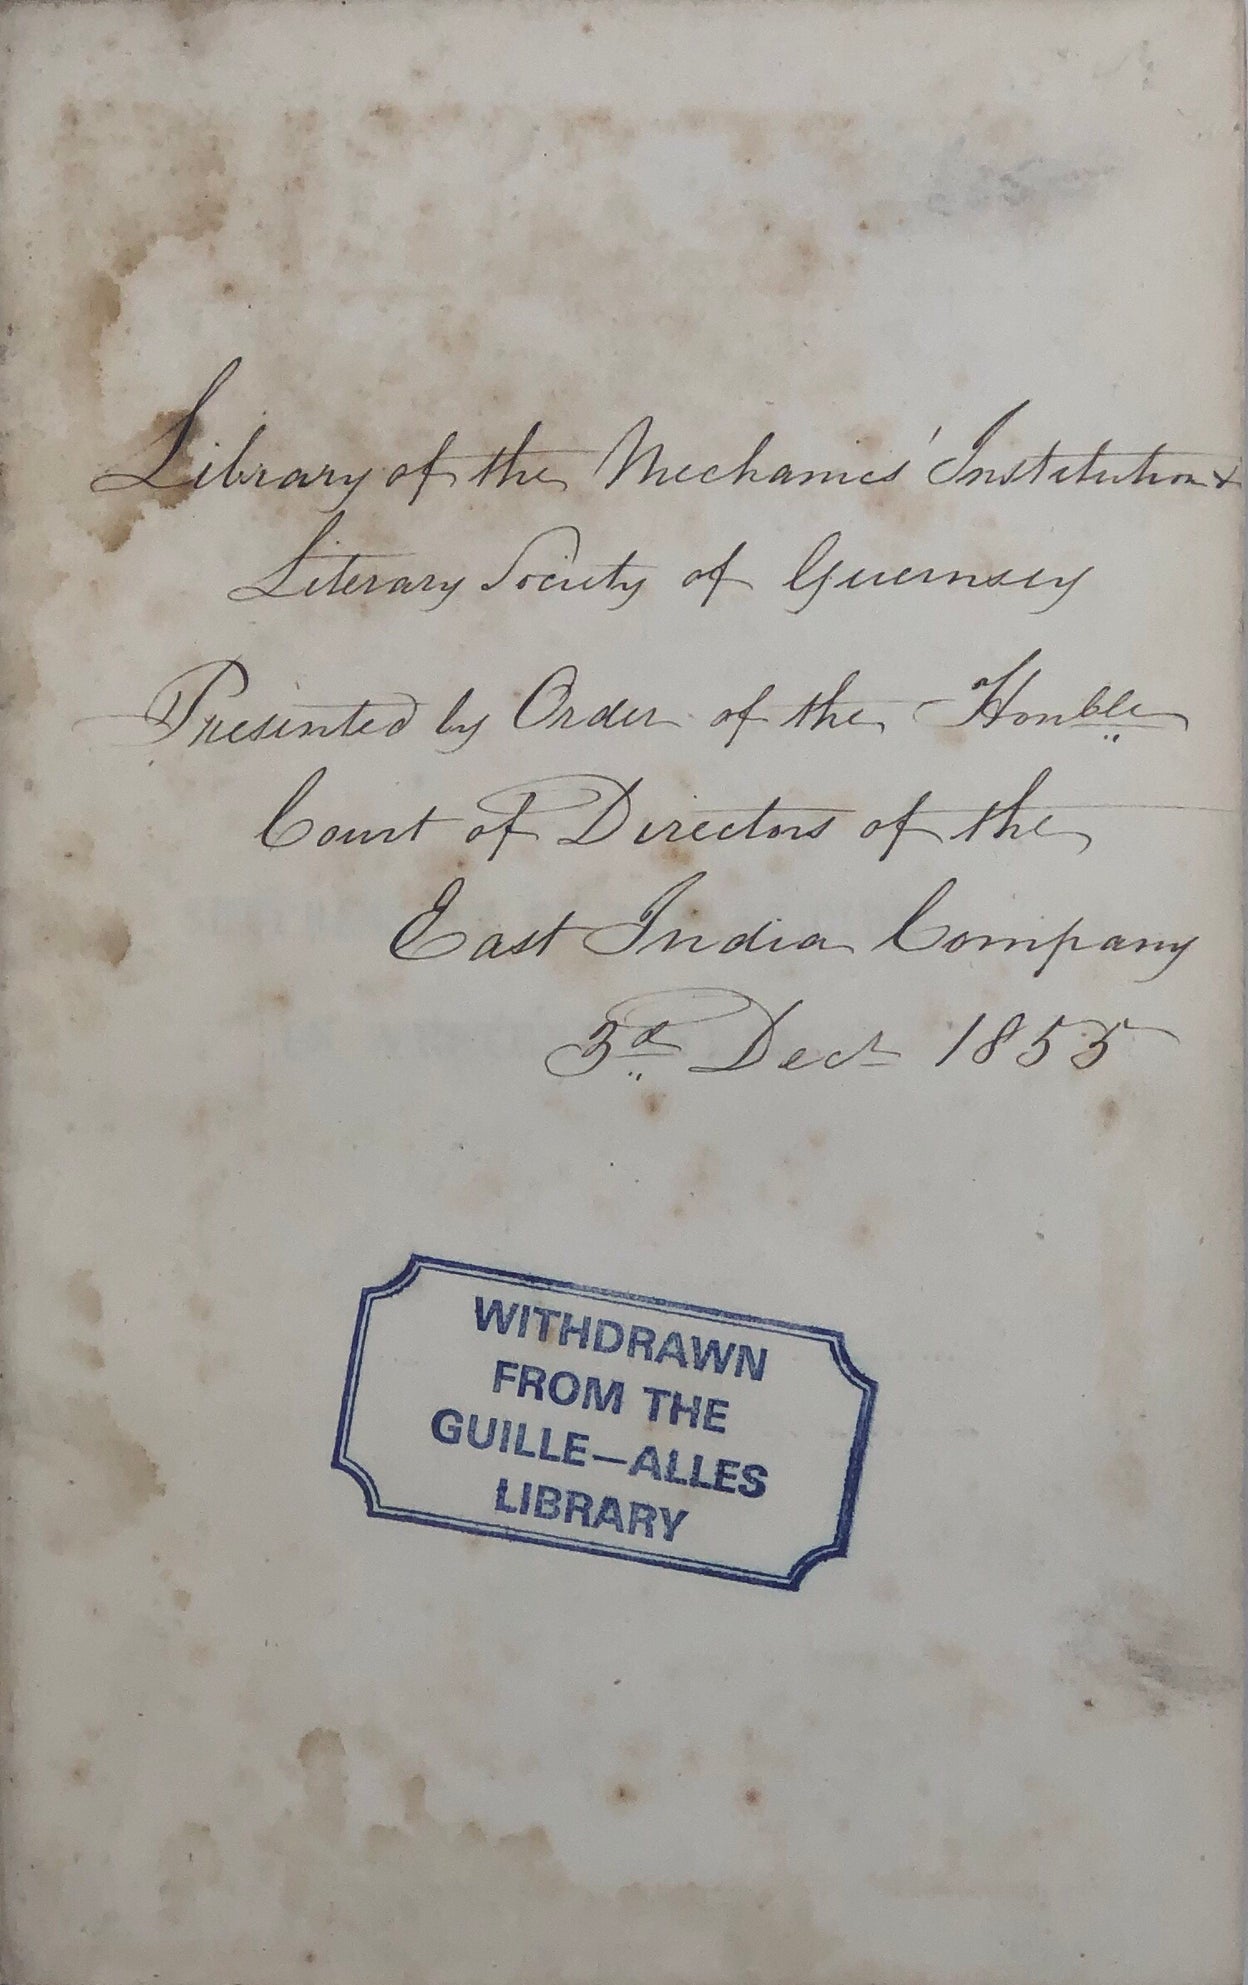 Library of the Mechanics' Institution &
Literary Society of Guernsey
Presented by Order of the Honble
Court of Directors of the
East India Company
3d Decr 1855
WITHDRAWN
FROM THE
GUILLE—ALLES
LIBRARY